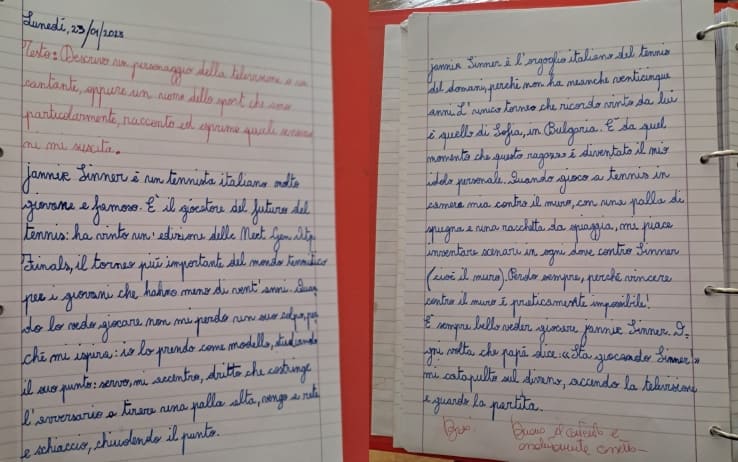 Lunedì, 23/01/2023
Testo: Descrivo un personaggio della televisione o un
cantante, oppure un uomo dello sport che amo
particolarmente, racconto ed esprimo quali emozio
ni mi suscita.
Jannik Sinner è un tennista italiano molto
giovane e famoso. E' il giocatore del futuro del
tennis: ha vinto un'edizione delle Next Gen Atp
Finals, il torneo più importante del mondo tennistico
per i giovani che hanno meno di vent'anni. Quan
do lo vedo giocare non mi perdo un suo colpo, per
chè mi ispira: io lo prendo come modello, studiando
il suo punto: servo, mi accentro, dritto che costringe
l'avversario a tirare una palla alta, vengo a rete
e schiaccio, chiudendo il punto.
Jannik Sinner è l'orgoglio italiano del tennis
del domani, perchè non ha neanche venticinque
anni. L'unico torneo che ricordo vinto da lui
è quello di Sofia, in Bulgaria. E' da quel
momento che questo ragazzo è diventato il mio
idolo personale. Quando gioco a tennis in
camera mia contro il muro, con una palla di
spugna e una racchetta da spiaggia, mi piace
inventare scenari in ogni dove contro Sinner
(cioè il muro). Perdo sempre, perchè vincere
contro il muro è praticamente impossibile!
E' sempre bello veder giocare Jannik Sinner. O-
gni volta che papà dice: «Sta giocando Sinner»
mi catapulto sul divano, accendo la televisione
e guardo la partita.
Buono il contenuto e